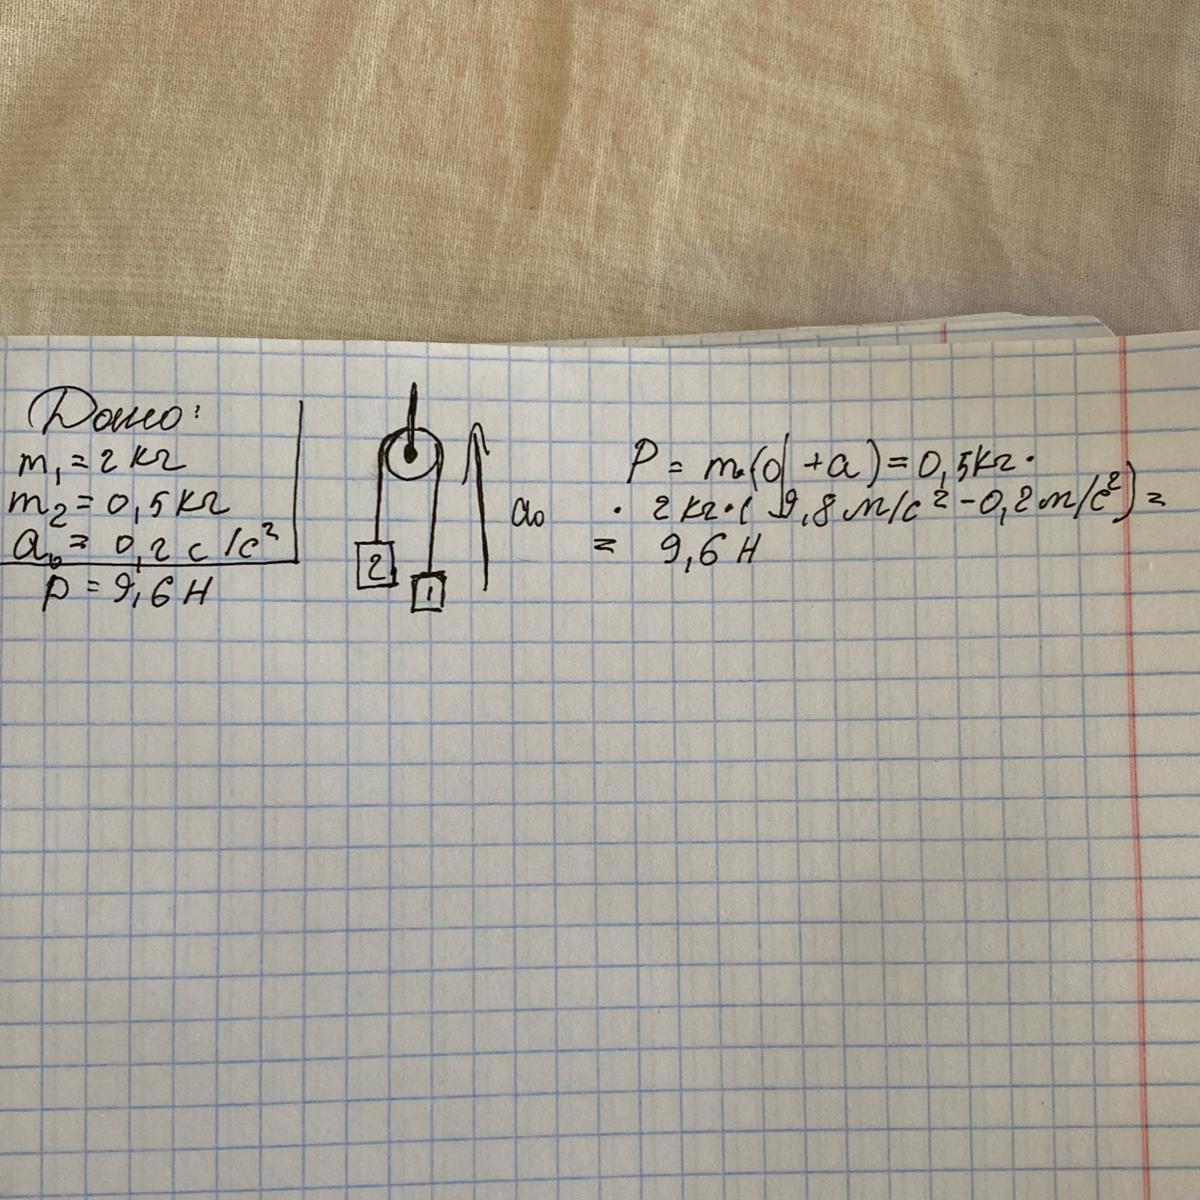 Дано:
m₁ = 2 кг
m₂ = 0,5 кг
a₀ = 0,2 с/с²
P = 9,6 Н
2
1
a₀
P = m(g + a) = 0,5кг ·
· 2 кг · ( 9,8 м/с² - 0,2 м/с²) =
= 9,6 Н